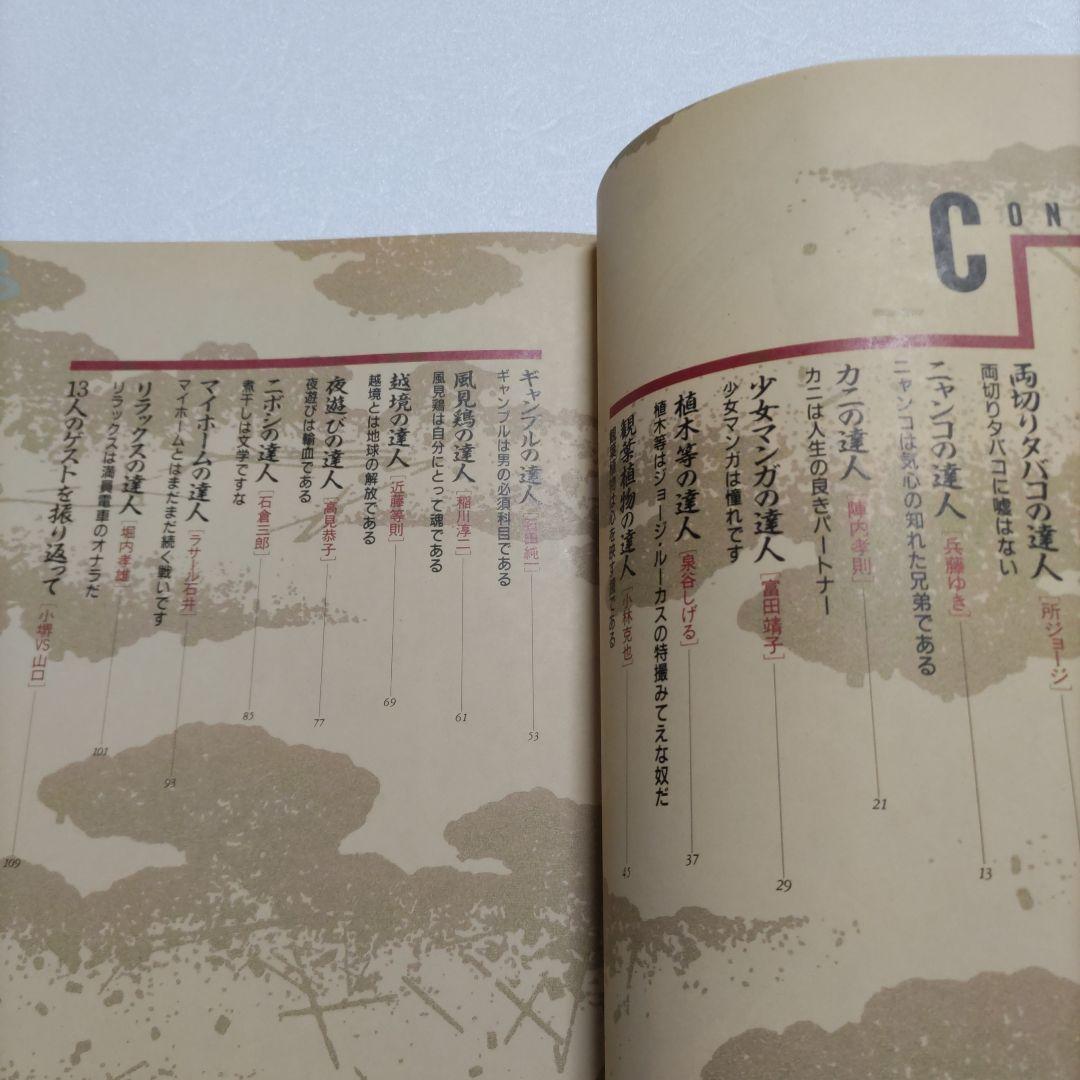 CON
両切りタバコの達人[所ジョージ]
両切りタバコに嘘はない
ニャンコの達人[兵藤ゆき]
ニャンコは気心の知れた兄弟である
13
カニの達人[陣内孝則]
カニは人生の良きパートナー
21
少女マンガの達人[富田靖子]
少女マンガは憧れです
29
植木等の達人[泉谷しげる]
植木等はジョージ・ルーカスの特撮みてえな奴だ
37
観葉植物の達人[小林克也]
観葉植物は心を映す鏡である
45
ギャンブルの達人[石田純一]
ギャンブルは男の必須科目である
53
風見鶏の達人[稲川淳二]
風見鶏は自分にとって魂である
61
越境の達人[近藤等則]
越境とは地球の解放である
69
夜遊びの達人[高見恭子]
夜遊びは輸血である
77
ニボシの達人[石倉三郎]
煮干しは文学ですな
85
マイホームの達人[ラサール石井]
マイホームとはまだまだ続く戦いです
93
リラックスの達人[堀内孝雄]
リラックスは満員電車のオナラだ
101
13人のゲストを振り返って[小堺VS山口]
109